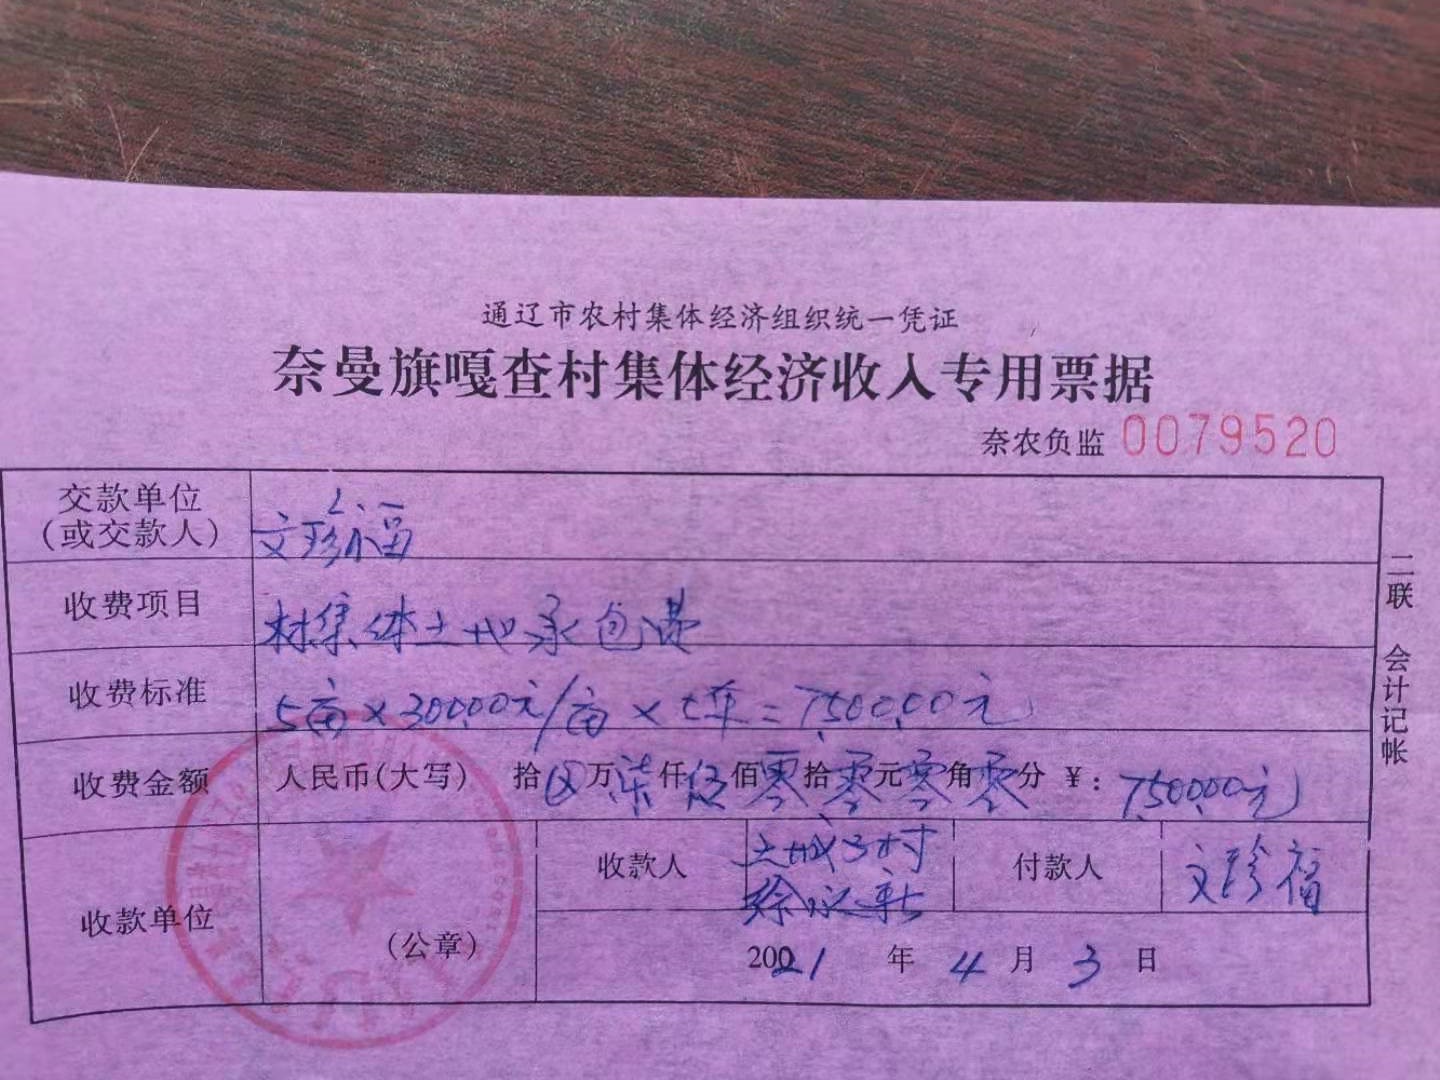 通辽市农村集体经济组织统一凭证
奈曼旗嘎查村集体经济收入专用票据
奈农负监 0079520
交款单位
(或交款人)
文珍福
收费项目
村集体土地承包费
收费标准
5亩×300.00元/亩×5年=7,500.00元
收费金额
人民币(大写) 拾⊗万柒仟伍佰零拾零元零角零分 ¥:7,500.00元
收款单位
(公章)
收款人
土城子村
徐永新
付款人
文珍福
2021 年 4 月 3 日
二联 会计记帐